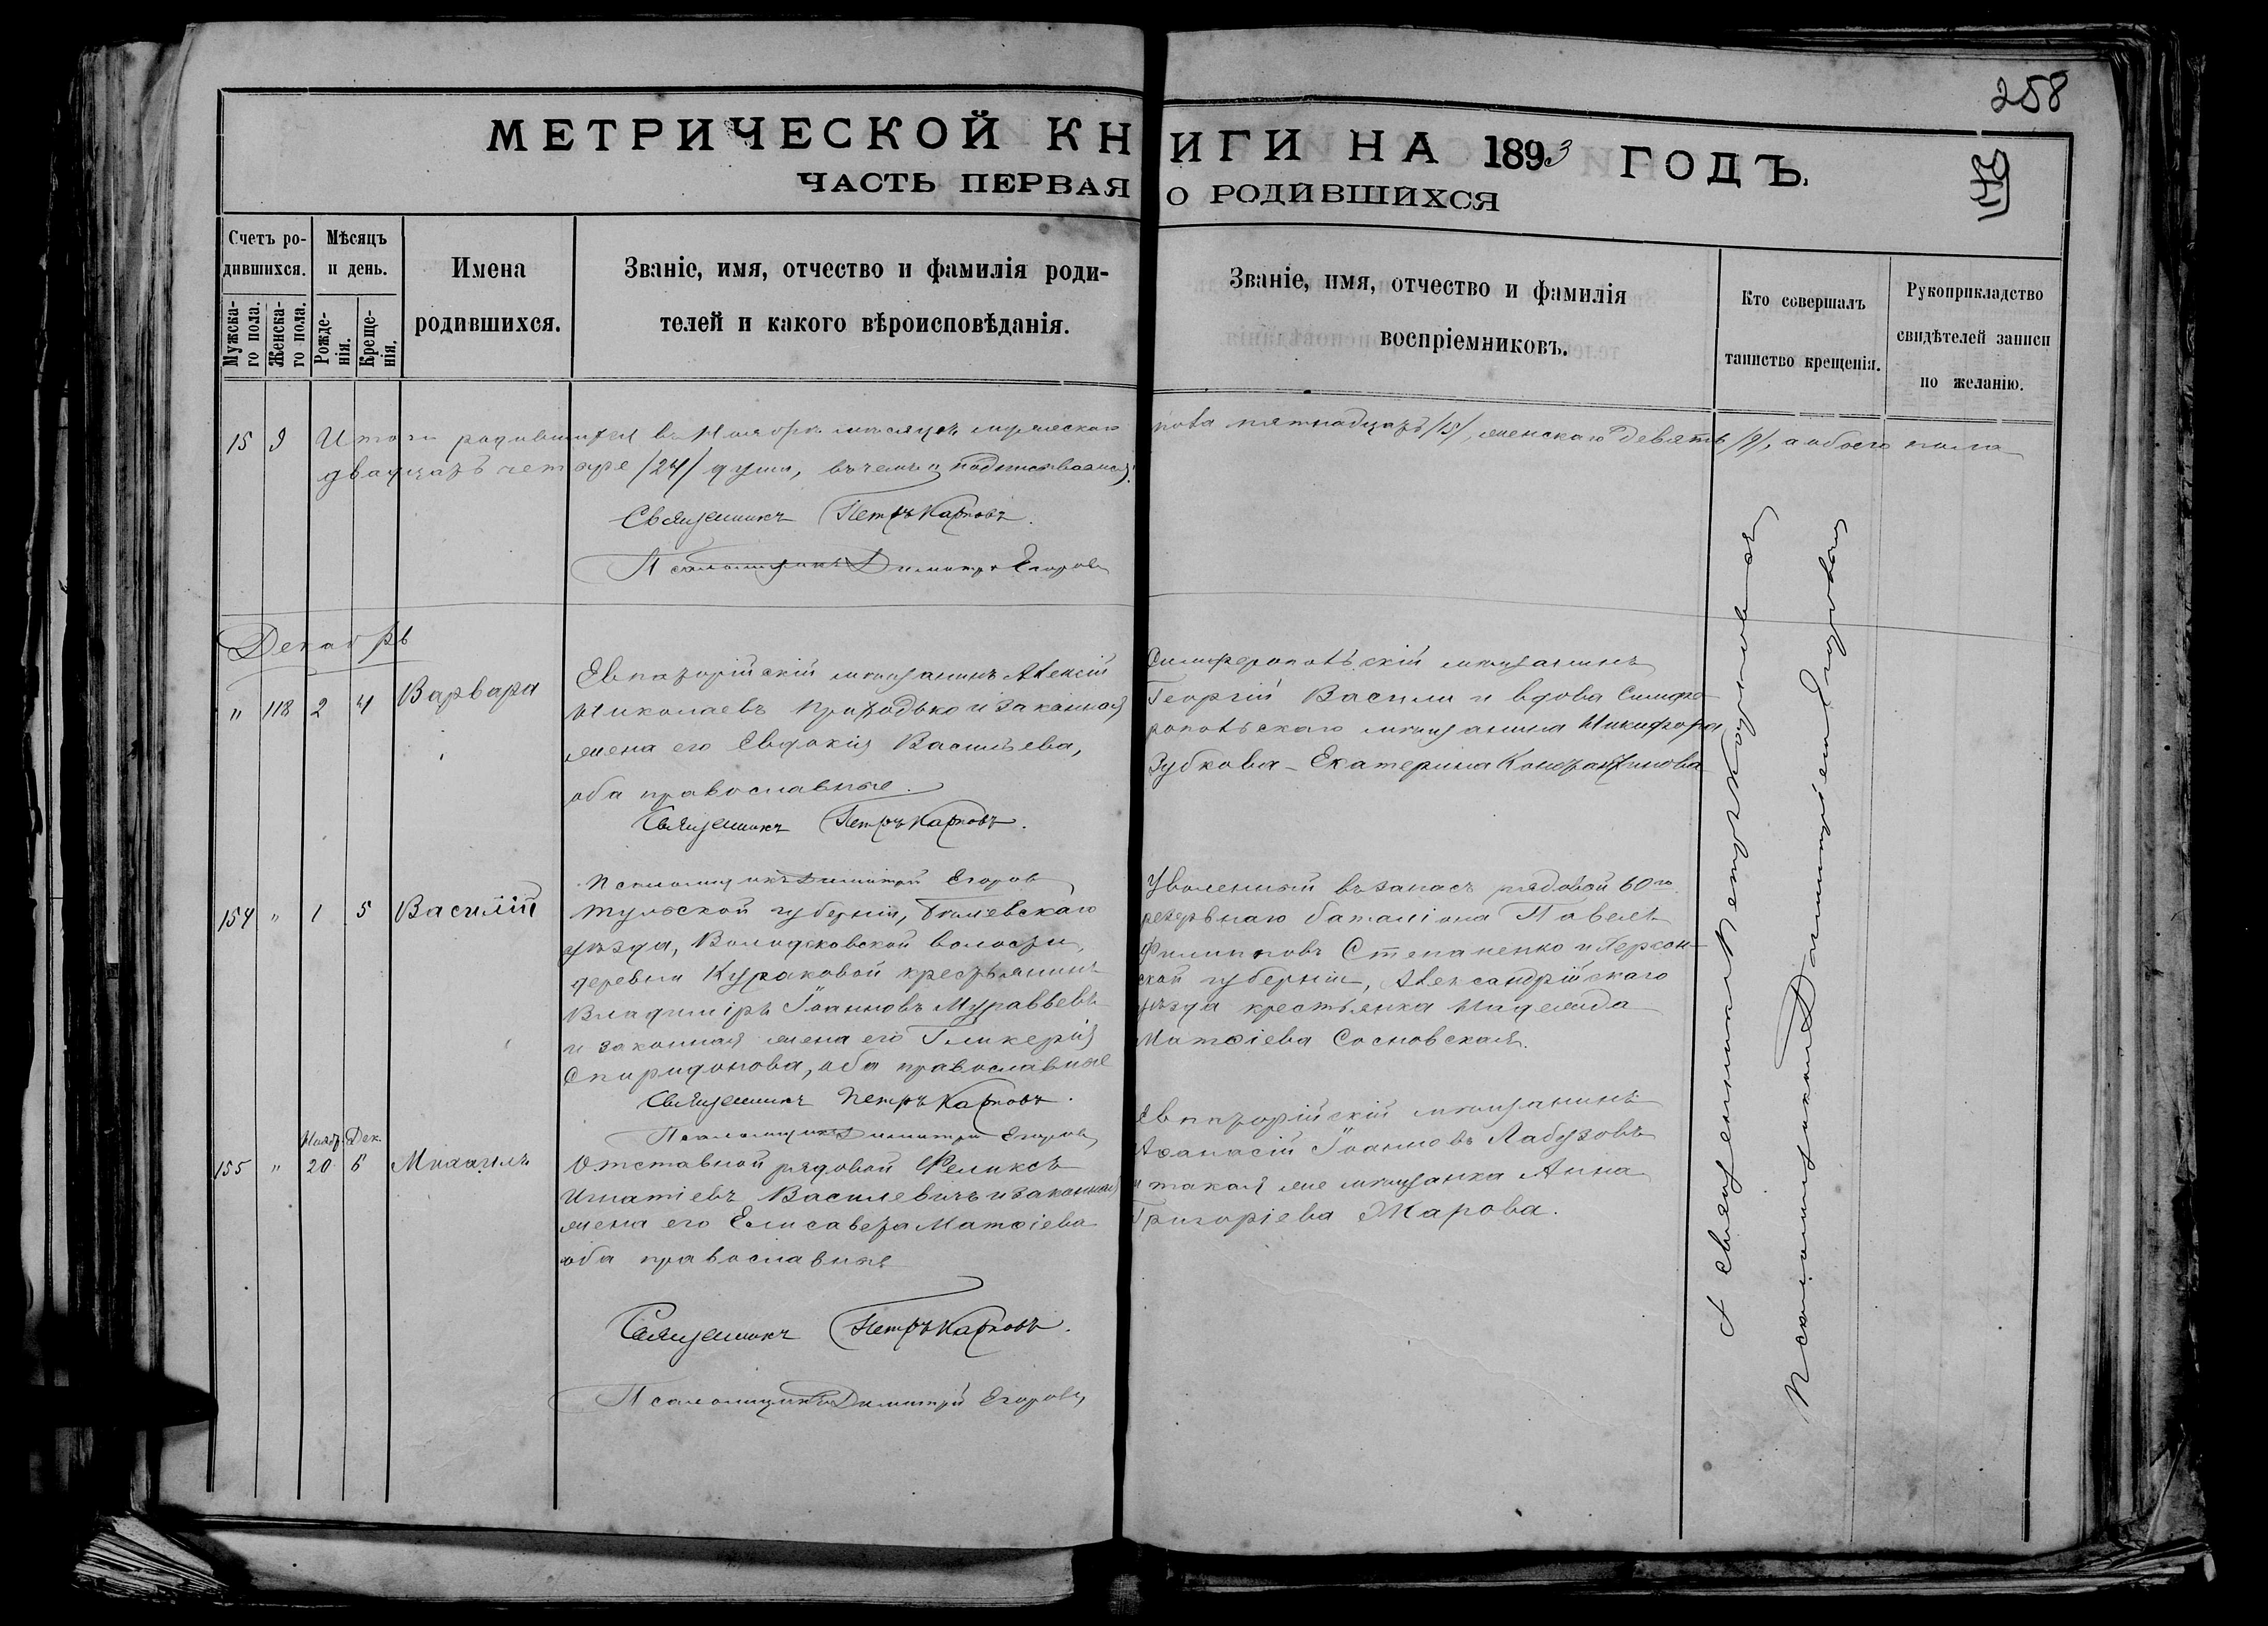 258
МЕТРИЧЕСКОЙ КНИГИ НА 1893 ГОДЪ.
ЧАСТЬ ПЕРВАЯ О РОДИВШИХСЯ
Счетъ родившихся.
Мужскаго пола.
Женскаго пола.
Мѣсяцъ и день.
Рожденія.
Крещенія.
Имена
родившихся.
Званіе, имя, отчество и фамилія роди-
телей и какого вѣроисповѣданія.
Званіе, имя, отчество и фамилія
воспріемниковъ.
Кто совершалъ
таинство крещенія.
Рукоприкладство
свидѣтелей записи
по желанію.
15 9 Итого родившихся въ Ноябрѣ мѣсяцѣ мужескаго пола пятнадцать /15/, женскаго девять /9/, а обоего пола
двадцать четыре /24/ души, въ чемъ и подписываемся:
Священникъ Петръ Карповъ.
Псаломщикъ Димитрій Егоровъ
Декабрь
" 118 2 4 Варвара
Евпаторійскій мѣщанинъ Алексій
Николаевъ Приходько и законная
жена его Евдокія Васильева,
оба православные.
Священникъ Петръ Карповъ.
Псаломщикъ Димитрій Егоровъ
Симферопольскій мѣщанинъ
Георгій Васили и вдова Симфе-
ропольскаго мѣщанина Никифора
Зубкова - Екатерина Константинова
154 " 1 5 Василій
Тульской губерніи, Бѣлевскаго
уѣзда, Володьковской волости,
деревни Кураковой крестьянинъ
Владиміръ Іоанновъ Муравьевъ
и законная жена его Гликерія
Спиридонова, оба православные
Священникъ Петръ Карповъ.
Псаломщикъ Димитрій Егоровъ
Уволенный въ запасъ рядовой 60го
резервнаго баталіона Павелъ
Филипповъ Степаненко и Херсон-
ской губерніи, Александрійскаго
уѣзда крестьянка Надежда
Матѳіева Сосновская.
Ноябр. Дек.
155 " 20 6 Михаилъ
Отставной рядовой Феликсъ
Игнатіевъ Василевичъ и законная
жена его Елисавета Матѳіева
оба православные
Священникъ Петръ Карповъ.
Псаломщикъ Димитрій Егоровъ
Евпаторійскій мѣщанинъ
Аѳанасій Іоанновъ Лабузовъ
и такая же мѣщанка Анна
Григоріева Жарова.
Священникъ Петръ Карповъ съ
Псаломщикомъ Димитріемъ Егоровымъ